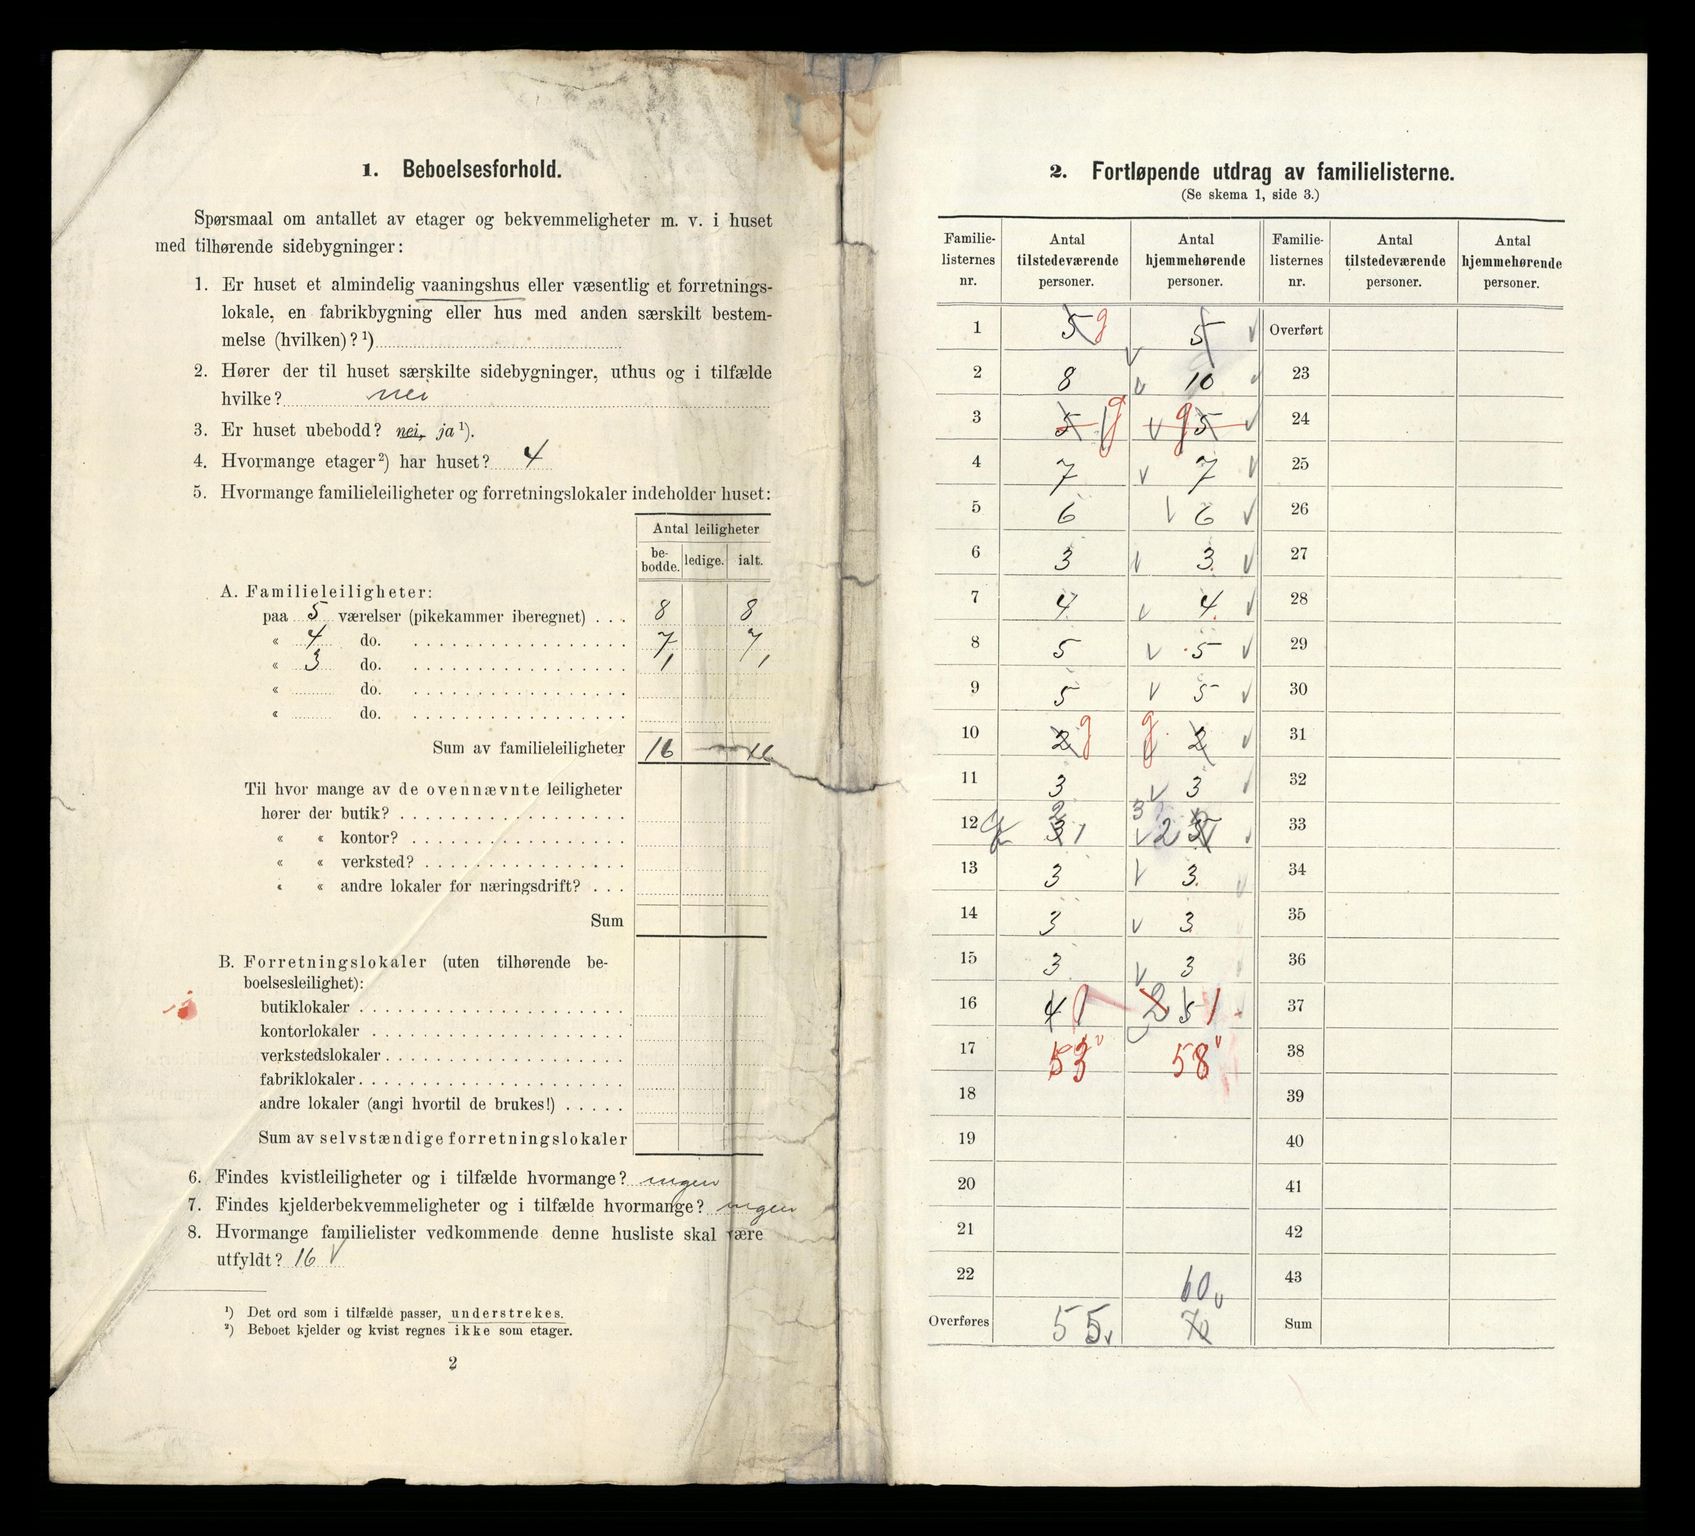 1. Beboelsesforhold.
Spørsmaal om antallet av etager og bekvemmeligheter m. v. i huset
med tilhørende sidebygninger:
1. Er huset et almindelig vaaningshus eller væsentlig et forretnings-
lokale, en fabrikbygning eller hus med anden særskilt bestem-
melse (hvilken)?¹)
2. Hører der til huset særskilte sidebygninger, uthus og i tilfælde
hvilke? nei
3. Er huset ubebodd? nei, ja¹).
4. Hvormange etager²) har huset? 4
5. Hvormange familieleiligheter og forretningslokaler indeholder huset:
Antal leiligheter
be-bodde. ledige. ialt.
A. Familieleiligheter:
paa 5 værelser (pikekammer iberegnet) . . . 8 8
« 4 do. 7 7
« 3 do. 1 1
« do.
« do.
Sum av familieleiligheter 16 — 16
Til hvor mange av de ovennævnte leiligheter
hører der butik?
« « kontor?
« « verksted?
« « andre lokaler for næringsdrift? . . .
Sum
B. Forretningslokaler (uten tilhørende be-
boelsesleilighet):
butiklokaler
kontorlokaler
verkstedslokaler
fabriklokaler
andre lokaler (angi hvortil de brukes!)
Sum av selvstændige forretningslokaler
6. Findes kvistleiligheter og i tilfælde hvormange? ingen
7. Findes kjelderbekvemmeligheter og i tilfælde hvormange? ingen
8. Hvormange familielister vedkommende denne husliste skal være
utfyldt? 16 v
¹) Det ord som i tilfælde passer, understrekes.
²) Beboet kjelder og kvist regnes ikke som etager.
2
2. Fortløpende utdrag av familielisterne.
(Se skema 1, side 3.)
Familie-listernes nr. Antal tilstedeværende personer. Antal hjemmehørende personer. Familie-listernes nr. Antal tilstedeværende personer. Antal hjemmehørende personer.
1 5 g 5 v Overført
2 8 v 10 v 23
3 5 g v g 5 v 24
4 7 v 7 v 25
5 6 v 6 v 26
6 3 v 3 v 27
7 4 v 4 v 28
8 5 v 5 v 29
9 5 v 5 v 30
10 2 g g 2 v 31
11 3 v 3 v 32
12 g 3 2 1 v 3 2 v 33
13 3 v 3 v 34
14 3 v 3 v 35
15 3 v 3 v 36
16 4 1 2 5 1 37
17 53 v 58 v 38
18 39
19 40
20 41
21 42
22 60 v 43
Overføres 55 v 70 Sum